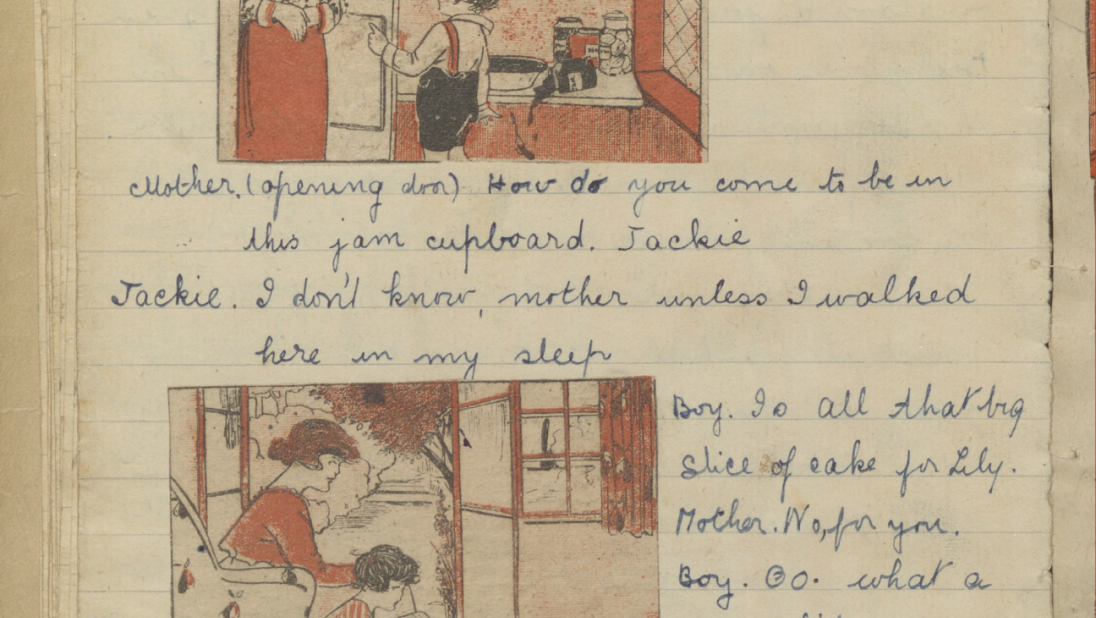 Mother. (opening door) How do you come to be in
this jam cupboard. Jackie
Jackie. I don't know, mother unless I walked
here in my sleep
Boy. Is all that big
slice of cake for Lily.
Mother. No, for you.
Boy. Oo. what a